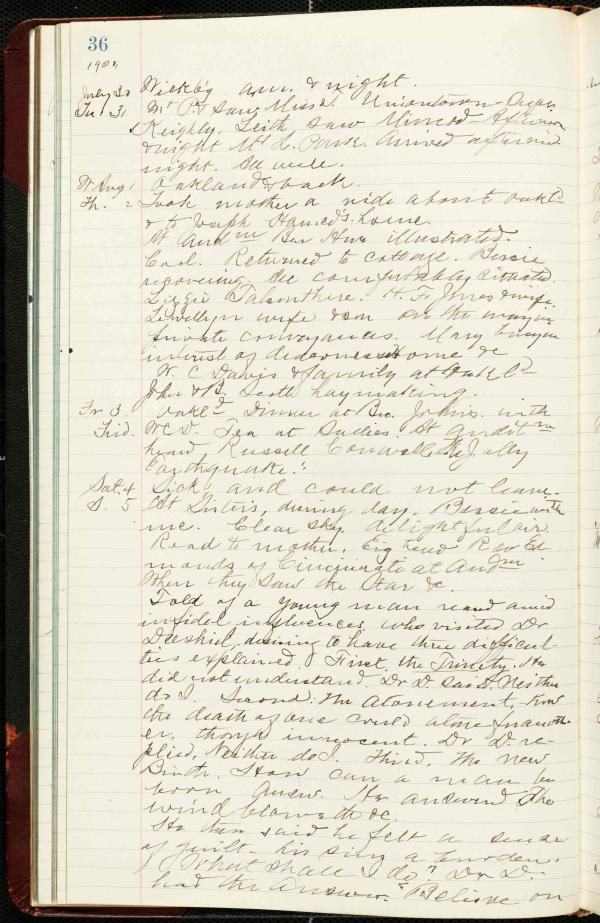 36
190
July 30 Sick by a.m. & night.
Tu 31 Mt P. & saw Miss. Uniontown
Keighly. Leith saw Afternoon
& night Mt L. Arrived after mid
night. All well.
W Aug 1 Oakland & back.
Th. 2 Took mother a ride about Oakld
& to Joseph home.
At Audm Ben Hur illustrated.
Returned to cottage. Bessie
recovering. All comfortably situated.
Lizzie there. H. F. Jones & wife.
Lewellyn wife & son on the
private conveyances. Mary
interest of some &c
W. C Davis & family at Oakld
John & B. Scott haymaking.
Fr 3. Oakld Dinner at Bro. John's with
Frid. W C D. Tea at Sadies. At Auditm
heard Russell Conwell "The Jolly
Earthquake."
Sat. 4 Sick and could not leave.
S. 5 At Sisters, during day. Bessie with
me. Clear sky, delightful air.
Read to mother. Eve heard Rev Ed
monds of Cincinnati at Audm.
When they saw the Star &c.
Told of a young man reared amid
infidel influences, who visited Dr
desiring to have three difficul-
ties explained. First, the Trinity. He
did not understand. Dr D. said. Neither
do I. Second: the Atonement, how
the death of one could atone for anoth-
er, though innocent. Dr D. re-
plied, Neither do I. Third, the new
Birth. How can a man be
born anew. He answered The
wind bloweth &c.
He then said he felt a sense
of guilt - his sins a burden.
"What shall I do"? Dr D.
had the Answer. "Believe on